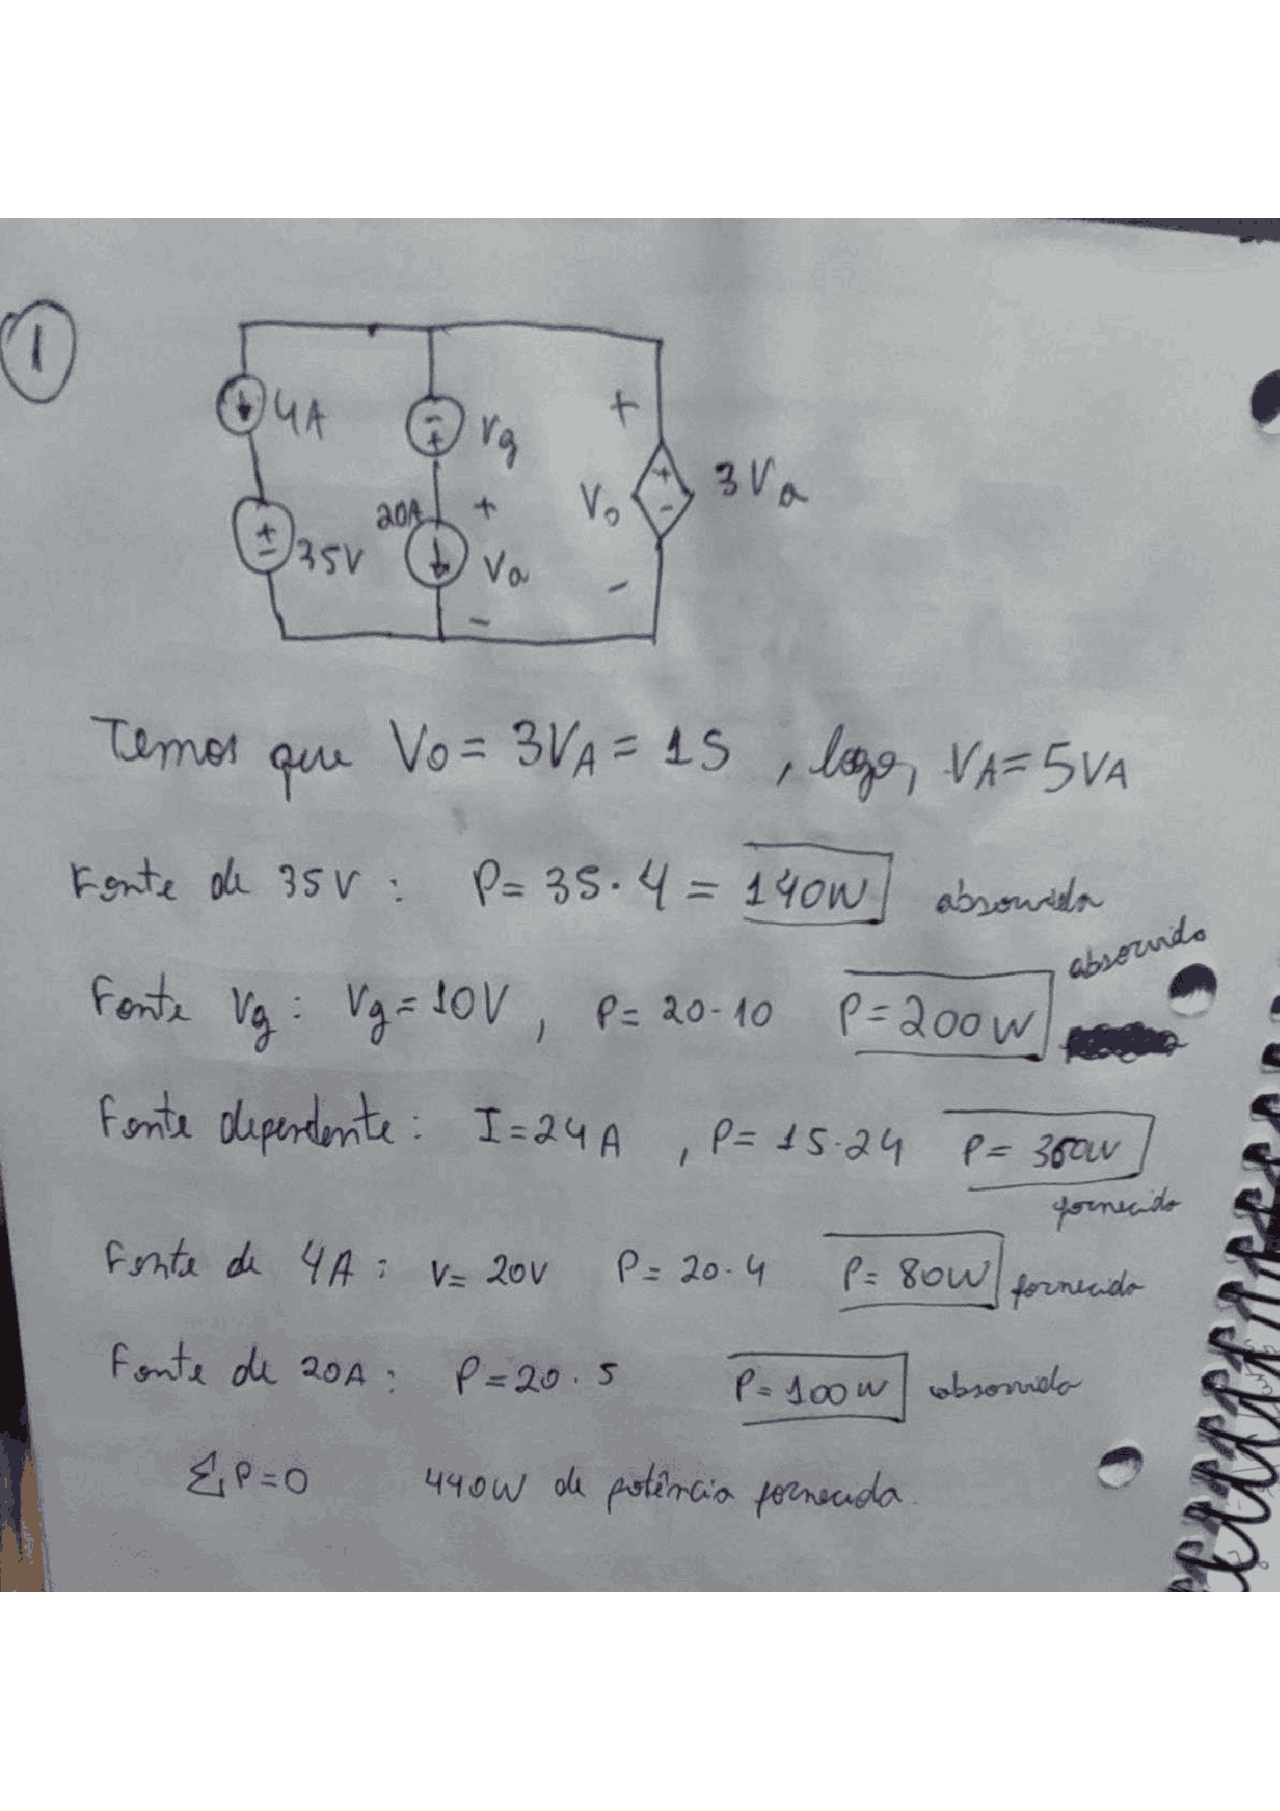 1
4A
- + Vg
+
3Va
+ -
Vo
20A
+
+ - 35V
Va
-
-
Temos que Vo = 3VA = 15 , logo, VA = 5VA
Fonte de 35V : P = 35 · 4 = 140W absorvida
Fonte Vg : Vg = 10V , P = 20 · 10 P = 200W absorvido
Fonte dependente : I = 24A , P = 15 · 24 P = 360W fornecido
Fonte de 4A : V = 20V P = 20 · 4 P = 80W fornecido
Fonte de 20A : P = 20 · 5 P = 100W absorvido
ΣP = 0 440W de potência fornecida.